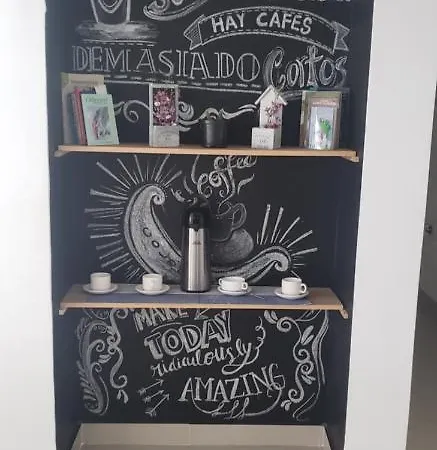 HAY CAFÉS
DEMASIADO Cortos
Coffee
MAKE
TODAY
ridiculously
AMAZING